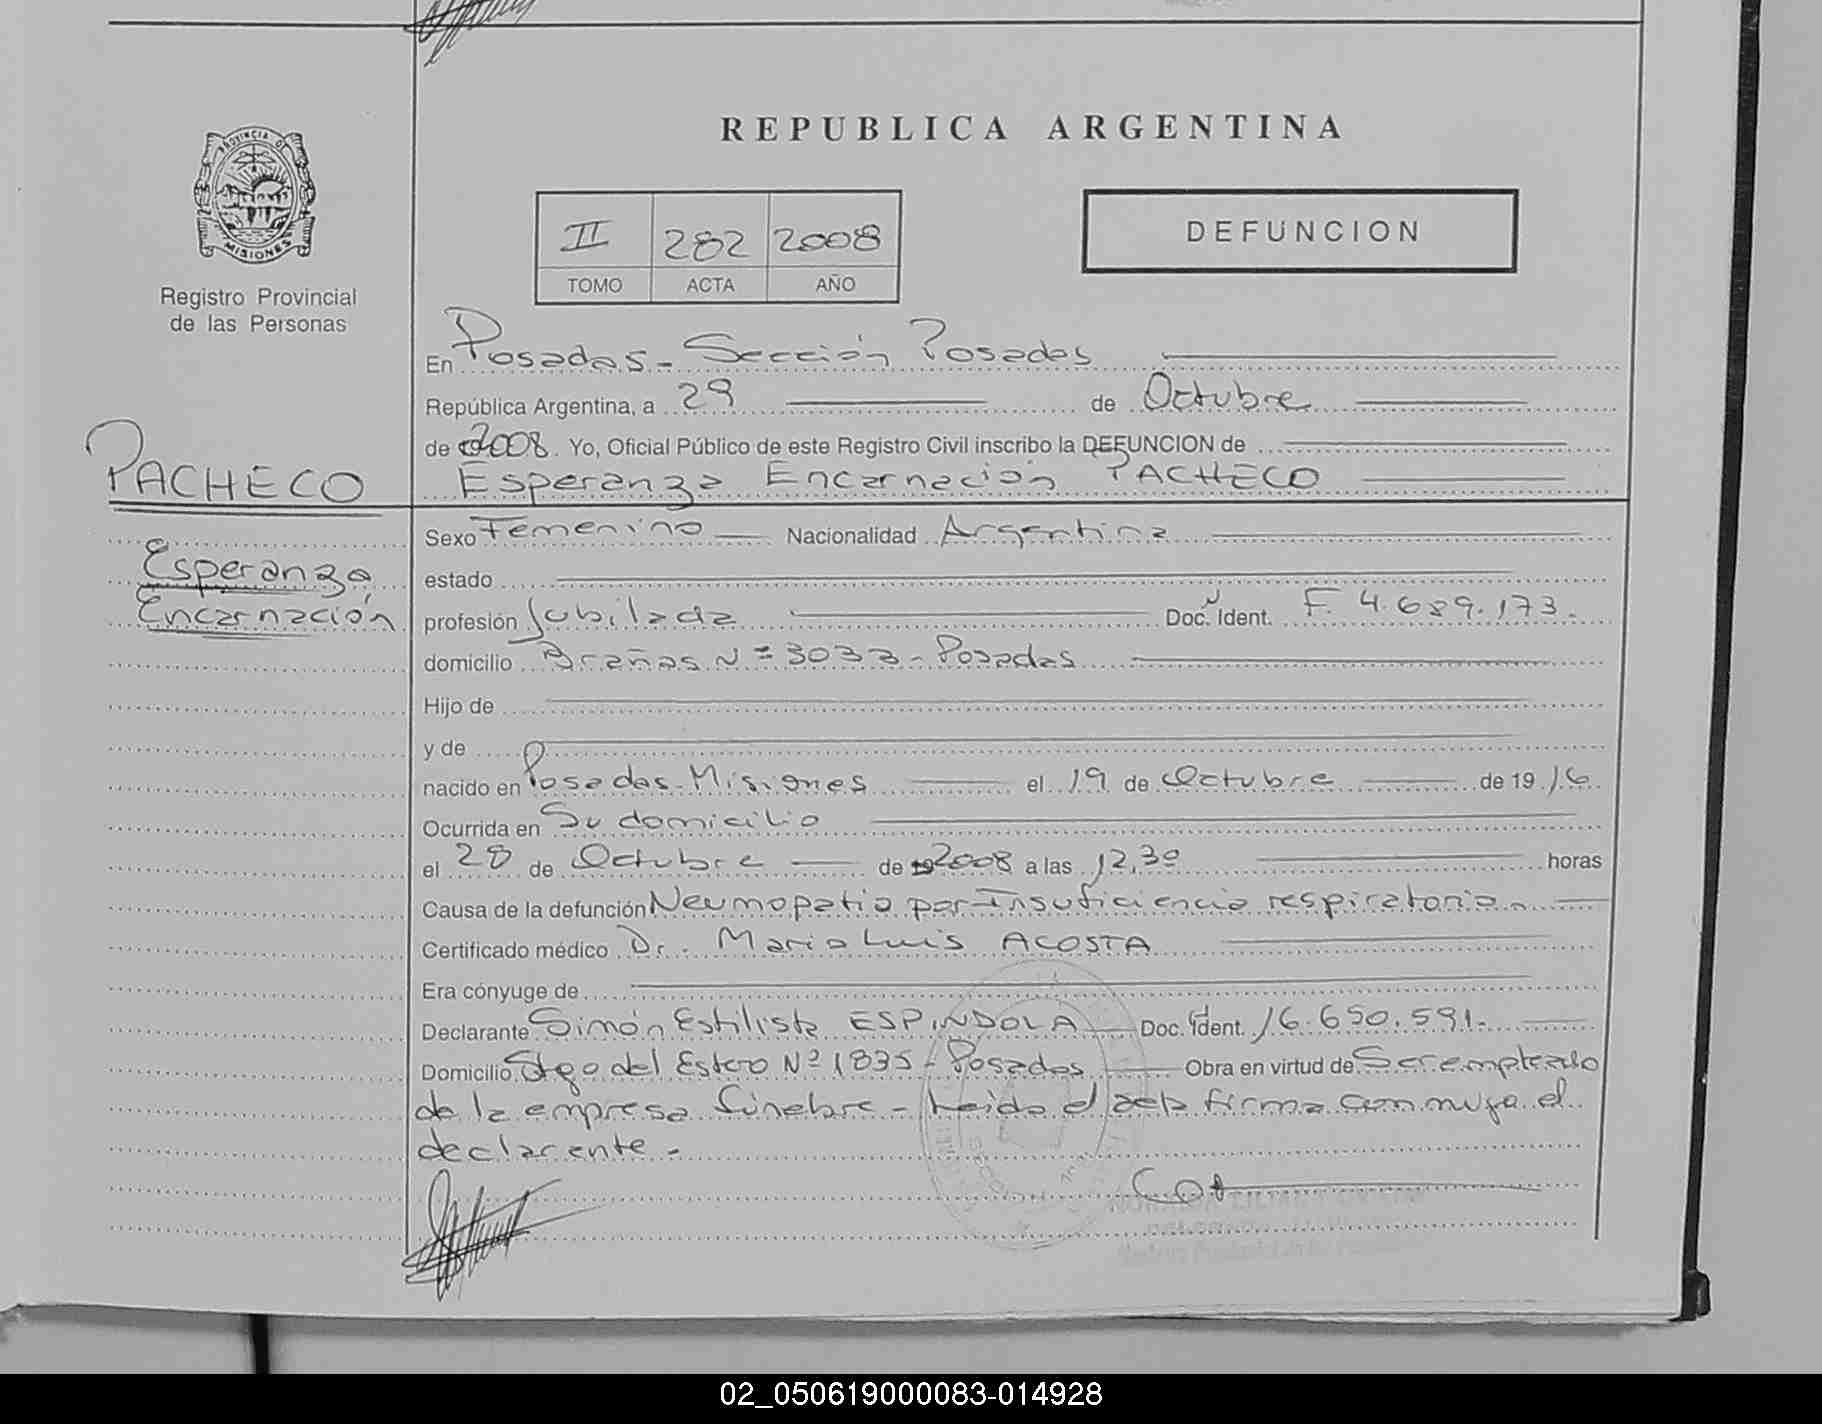 REPUBLICA ARGENTINA
PROVINCIA DE
MISIONES
Registro Provincial
de las Personas
II 282 2008
TOMO ACTA AÑO
DEFUNCION
En Posadas - Sección Posadas
República Argentina, a 29 de Octubre
de 2008. Yo, Oficial Público de este Registro Civil inscribo la DEFUNCION de
PACHECO
Esperanza Encarnación PACHECO
Esperanza
Encarnación
Sexo Femenino Nacionalidad Argentina
estado
profesión Jubilada Doc. Ident. F. 4.689.173.
domicilio Brañas Nº 3033 - Posadas
Hijo de
y de
nacido en Posadas - Misiones el 19 de Octubre de 1916
Ocurrida en Su domicilio
el 28 de Octubre de 2008 a las 12,30 horas
Causa de la defunción Neumopatia por Insuficiencia respiratoria.
Certificado médico Dr. Mario Luis ACOSTA
Era cónyuge de
Declarante Simón Estilista ESPINDOLA Doc. Ident. 16.650.591.
Domicilio Stgo del Estero Nº 1835 - Posadas Obra en virtud de Ser empleado
de la empresa fúnebre - Leida el acta firma conmigo el
declarante -
02_050619000083-014928